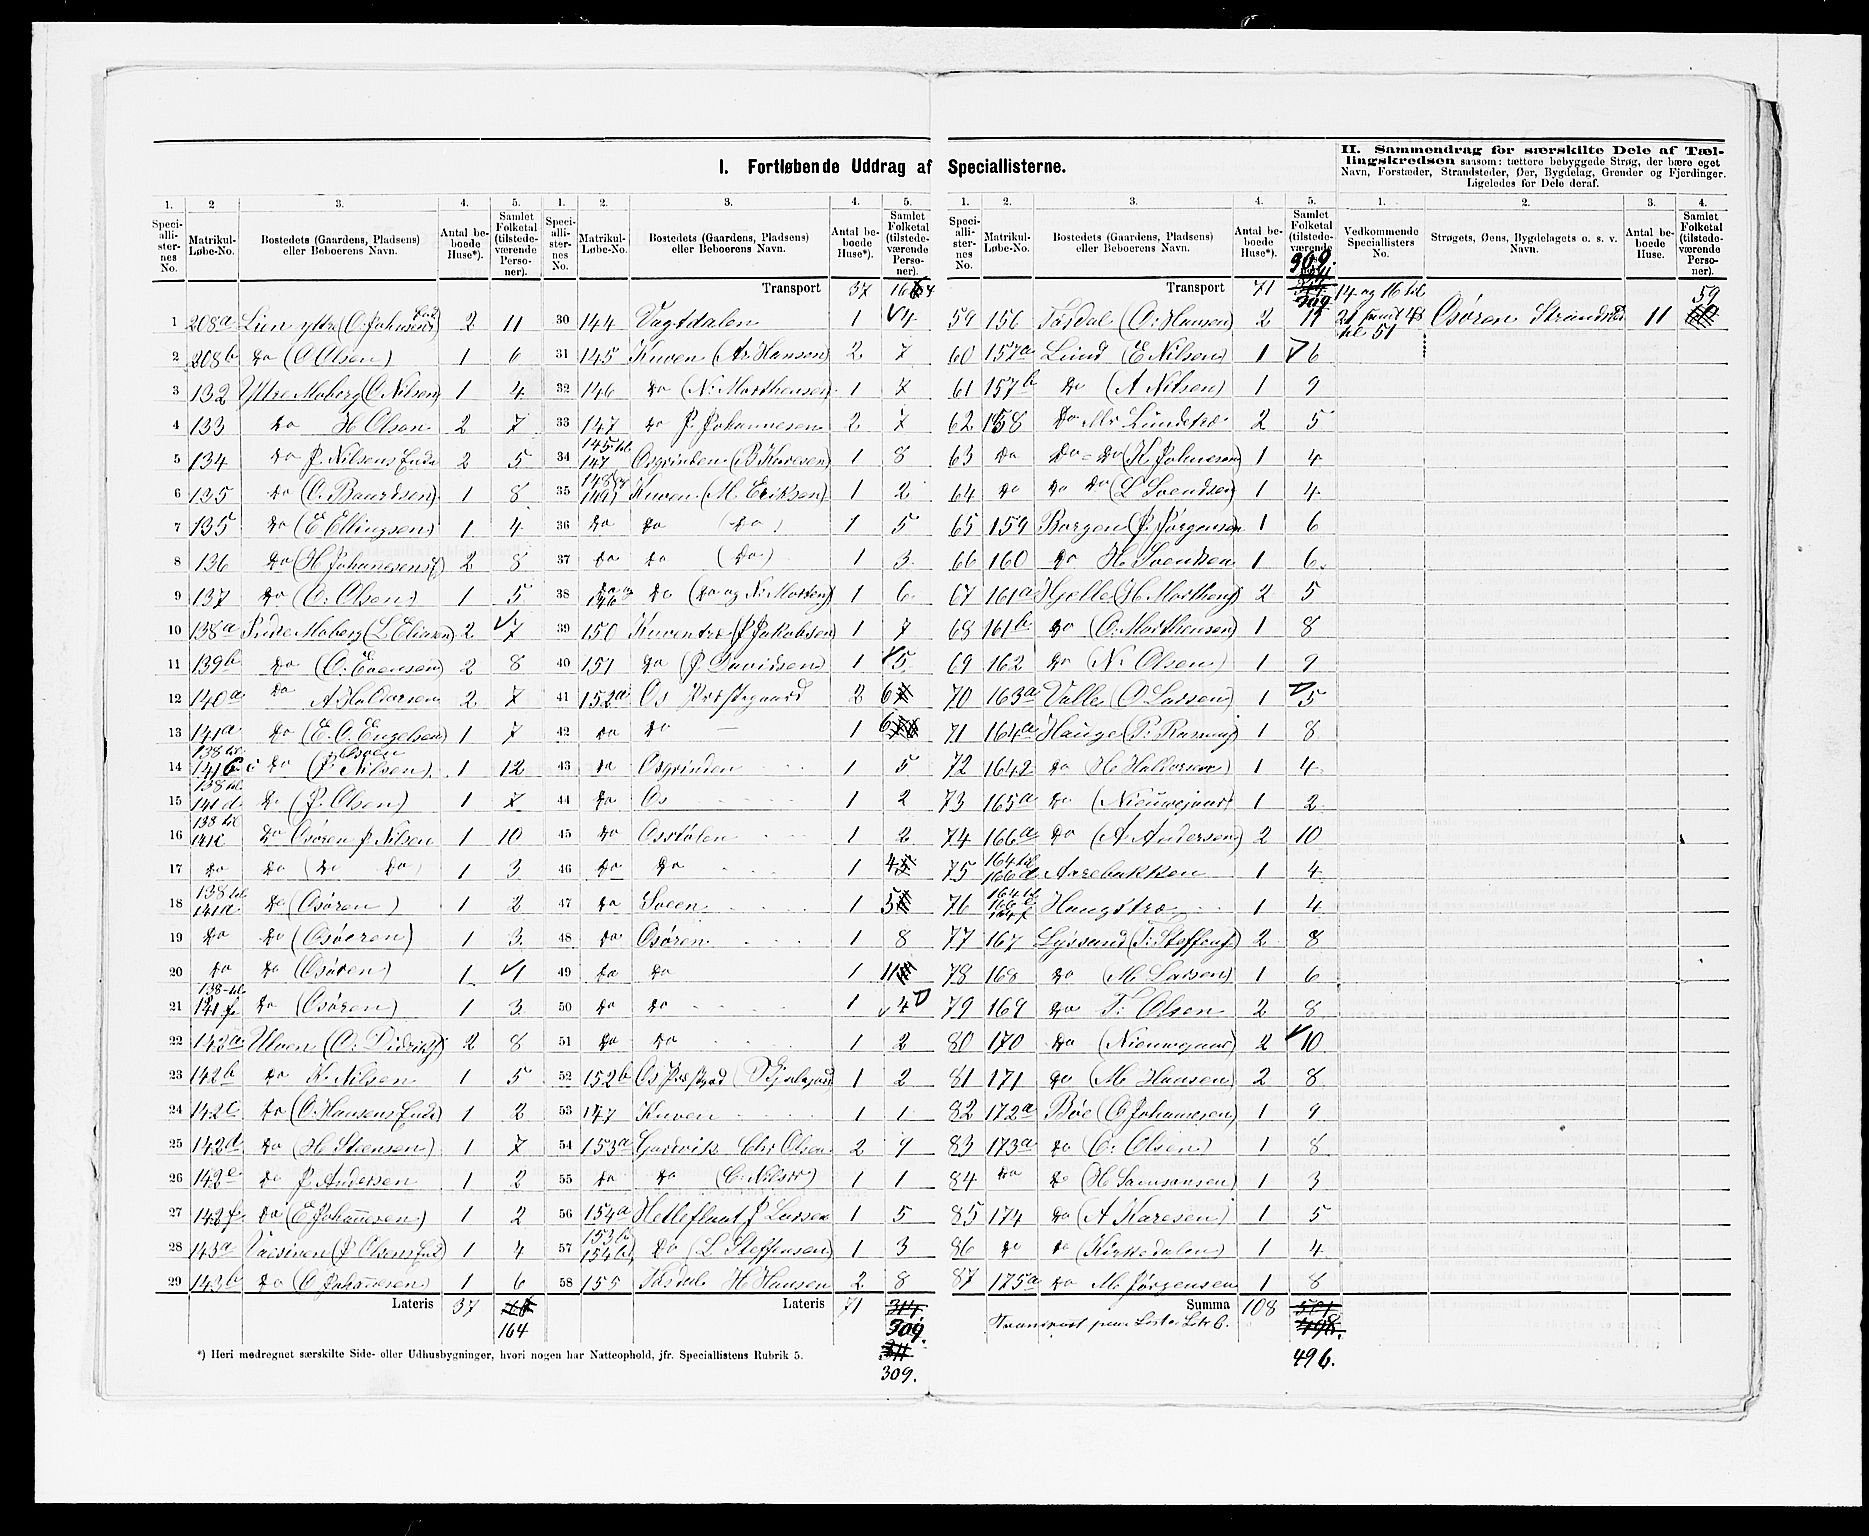 I. Fortløbende Uddrag af Speciallisterne.
II. Sammendrag for særskilte Dele af Tæl-
lingskredsen saasom: tættere bebyggede Strøg, der bære eget
Navn, Forstæder, Strandsteder, Øer, Bygdelag, Grender og Fjerdinger.
Ligeledes for Dele deraf.
1. 2 3. 4. 5.
Speci-
alli-
ster-
nes
No.
Matrikul-
Løbe-No.
Bostedets (Gaardens, Pladsens)
eller Beboerens Navn.
Antal be-
boede
Huse*).
Samlet
Folketal
(tilstede-
værende
Perso-
ner).
1 208a Lien yttre (O Johnsens 2 11
2 208b Do (O Olsen) 1 6
3 132 Yttre Moberg (O Nilsen) 1 4
4 133 Do H Olsen 2 7
5 134 Do P. Nilsens Enke 2 5
6 135 Do (O. Baardsen) 1 8
7 135 Do (E Ellingsen) 1 4
8 136 Do (H Johannesens) 2 8
9 137 Do (O. Olsen) 1 5
10 138a Indre Moberg (L Eliasen) 2 7
11 139b Do (O. Evensen) 2 8
12 140a Do A. Haldorsen 2 7
13 141a Do (E. O. Engelsen) 1 7
14 138 til 141 Do (P. Nilsen) 1 12
15 138 til 141d Do (P. Olsen) 1 7
16 138 til 141 Do Osøren P Nilsen 1 10
17 Do Do (Do Do) 1 3
18 138 til 141a Do (Osøren) 1 2
19 Do Do (Osøeren) 1 3
20 Do Do (Osøren) 1 1
21 138-til 141f Do (Osøren) 1 3
22 142a Ulven (O. Didriks) 2 8
23 142b Do K. Nilsen 1 5
24 142c Do (O. Hansens Enke) 1 2
25 142d Do (H Steensen) 1 7
26 142e Do P. Andersen 1 2
27 142f Do (E Johannesen) 1 2
28 143a (P Olsens Enk) 1 4
29 143b Do (O Johannesen) 1 6
Lateris 37
164
1. 2. 3. 4. 5.
Speci-
alli-
ster-
nes
No.
Matrikul-
Løbe-No.
Bostedets (Gaardens, Pladsens)
eller Beboerens Navn.
Antal be-
boede
Huse*).
Samlet
Folketal
(tilstede-
værende
Perso-
ner).
Transport 37 164
30 144 Vagtdalen 1 4
31 145 Kuven (Ar Hansen) 2 7
32 146 Do (N. Morthensen) 1 7
33 147 Do P. Johannesen 2 7
34 145 til 147 Osgrinden (B Knresen) 1 8
35 148 og 149 Kuven (M. Eriksen) 1 2
36 Do Do (Do) 1 5
37 Do Do (Do) 1 3
38 Do og 146 Do (Do og N. Morten) 1 6
39 150 Kuventræ (P Jakobsen) 1 7
40 151 Do (P Davidsen) 1 5
41 152a Os Præstegaard 2 6
42 Do Do 1 6
43 Do Osgrinden 1 5
44 Do Os 1 2
45 Do Osstølen 1 2
46 Do Do 1 4
47 Do Sveen 1 5
48 Do Osøren 1 8
49 Do Do 1 11
50 Do Do 1 4
51 Do Do 1 2
52 152b Os Præstgrd 1 2
53 147 Kuven 1 1
54 153a Gaasvik Chr Olsen 2 7
55 Do Do (C. Nilsen) 1 1
56 154a Hetleflaat P Larsen 1 5
57 153b 154b Do (L Steffensen) 1 3
58 155 Tøsdal H Hansen 2 8
Lateris 71
309.
309.
1. 2. 3. 4. 5.
Speci-
alli-
ster-
nes
No.
Matrikul-
Løbe-No.
Bostedets (Gaardens, Pladsens)
eller Beboerens Navn.
Antal be-
boede
Huse*).
Samlet
Folketal
(tilstede-
værende
309.
Transport 71 309
59 156 Tøsdal (O. Hansen) 2 11
60 157a Lund (E Nilsen) 1 6
61 157b Do (A Nilsen) 1 9
62 158 Do Lundetræ 2 5
63 Do Do - Do (H. Johnesen) 1 4
64 Do Do Do (L Svendsen) 1 4
65 159 Borgen (P. Jørgensen 1 6
66 160 Do H. Svendsen 1 6
67 161a Hjelle (H. Mortheng) 2 5
68 161b Do (O. Morthensen) 1 8
69 162 Do (N. Olsen) 1 9
70 163a Valle (O Larsen) 1 5
71 164a Hauge (P. Rasmus) 1 8
72 1642 Do (H. Haldorsen) 1 4
73 165a Do (Nieuwejaar) 1 2
74 166a Do (A. Andersen) 2 10
75 164 til 166d Aarebakken 1 4
76 164 til Haugstræ 1 4
77 167 Lyssand (T. Steffens) 2 8
78 168 Do (M. Larsen) 1 6
79 169 Do T. Olsen 2 8
80 170 Do (Nieuwejaar) 2 10
81 171 Do (M. Hansen) 2 8
82 172a Bøe (O Johannesen) 1 9
83 173a Do (O. Olsen) 1 8
84 Do Do (H Samsonsen) 1 3
85 174 Do (A Karesen) 1 5
86 Do Do (Kirkedalen) 1 4
87 175a Do M. Jørgensen 1 8
Summa 108
Transport paa Liste Litr C.
496.
1. 2. 3. 4.
Vedkommende
Speciallisters
No.
Strøgets, Øens, Bygdelagets o. s. v.
Navn.
Antal be-
boede
Huse.
Samlet
Folketal
(tilstede-
værende
Perso-
ner).
14 og 16 til 21 samt 48 til 51 Osøren Strandsted 11 59
*) Heri medregnet særskilte Side- eller Udhusbygninger, hvori nogen har Natteophold, jfr. Speciallistens Rubrik 5.